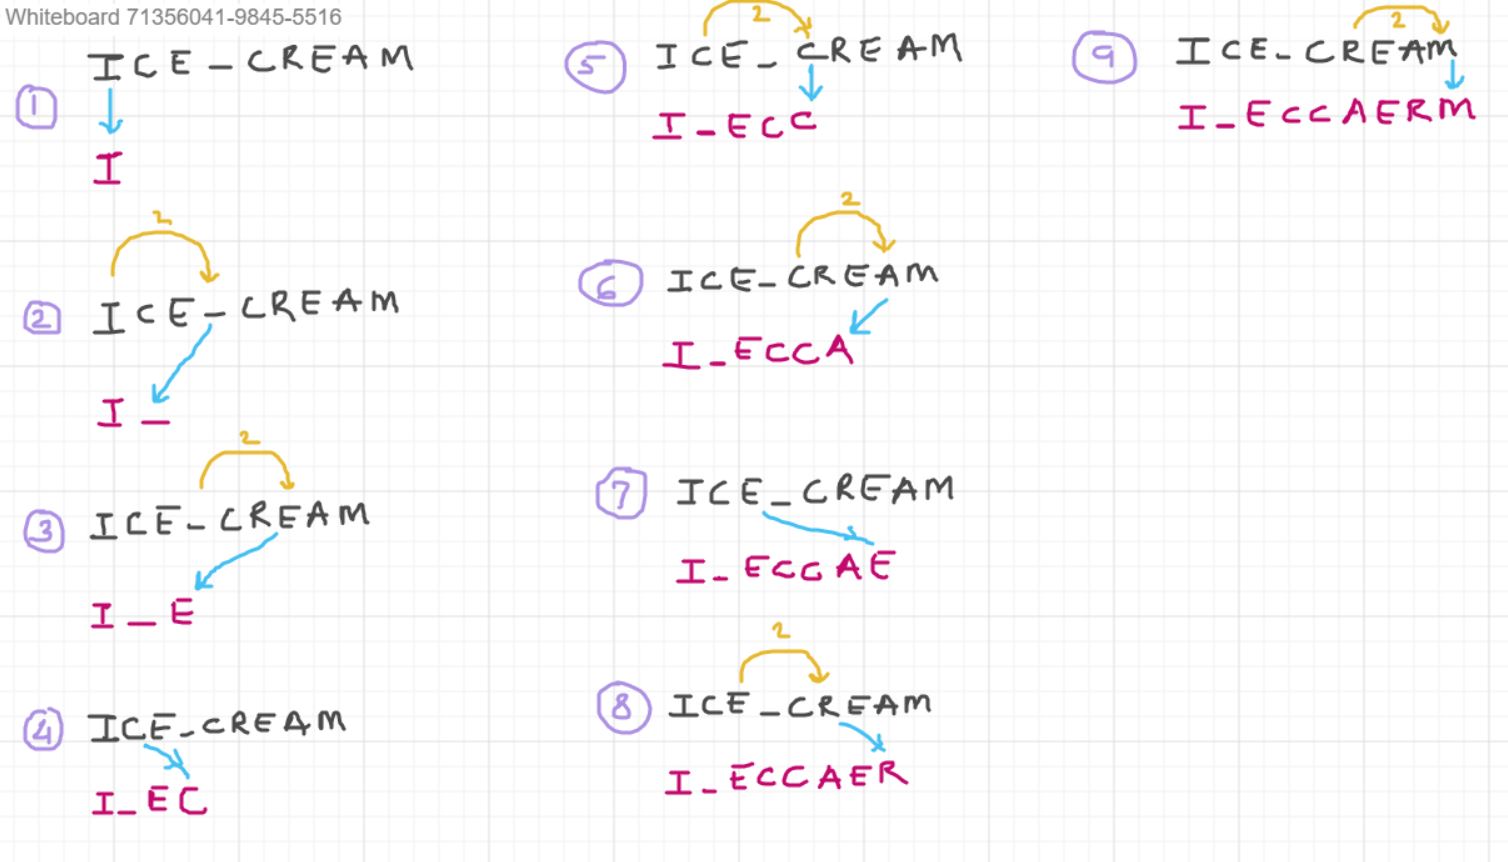 Whiteboard 71356041-9845-5516
1
ICE_CREAM
I
2
2
ICE_CREAM
I_
2
3
ICE_CREAM
I_E
4
ICE_CREAM
I_EC
2
5
ICE_CREAM
I_ECC
2
6
ICE_CREAM
I_ECCA
7
ICE_CREAM
I_ECCAE
2
8
ICE_CREAM
I_ECCAER
2
9
ICE_CREAM
I_ECCAERM